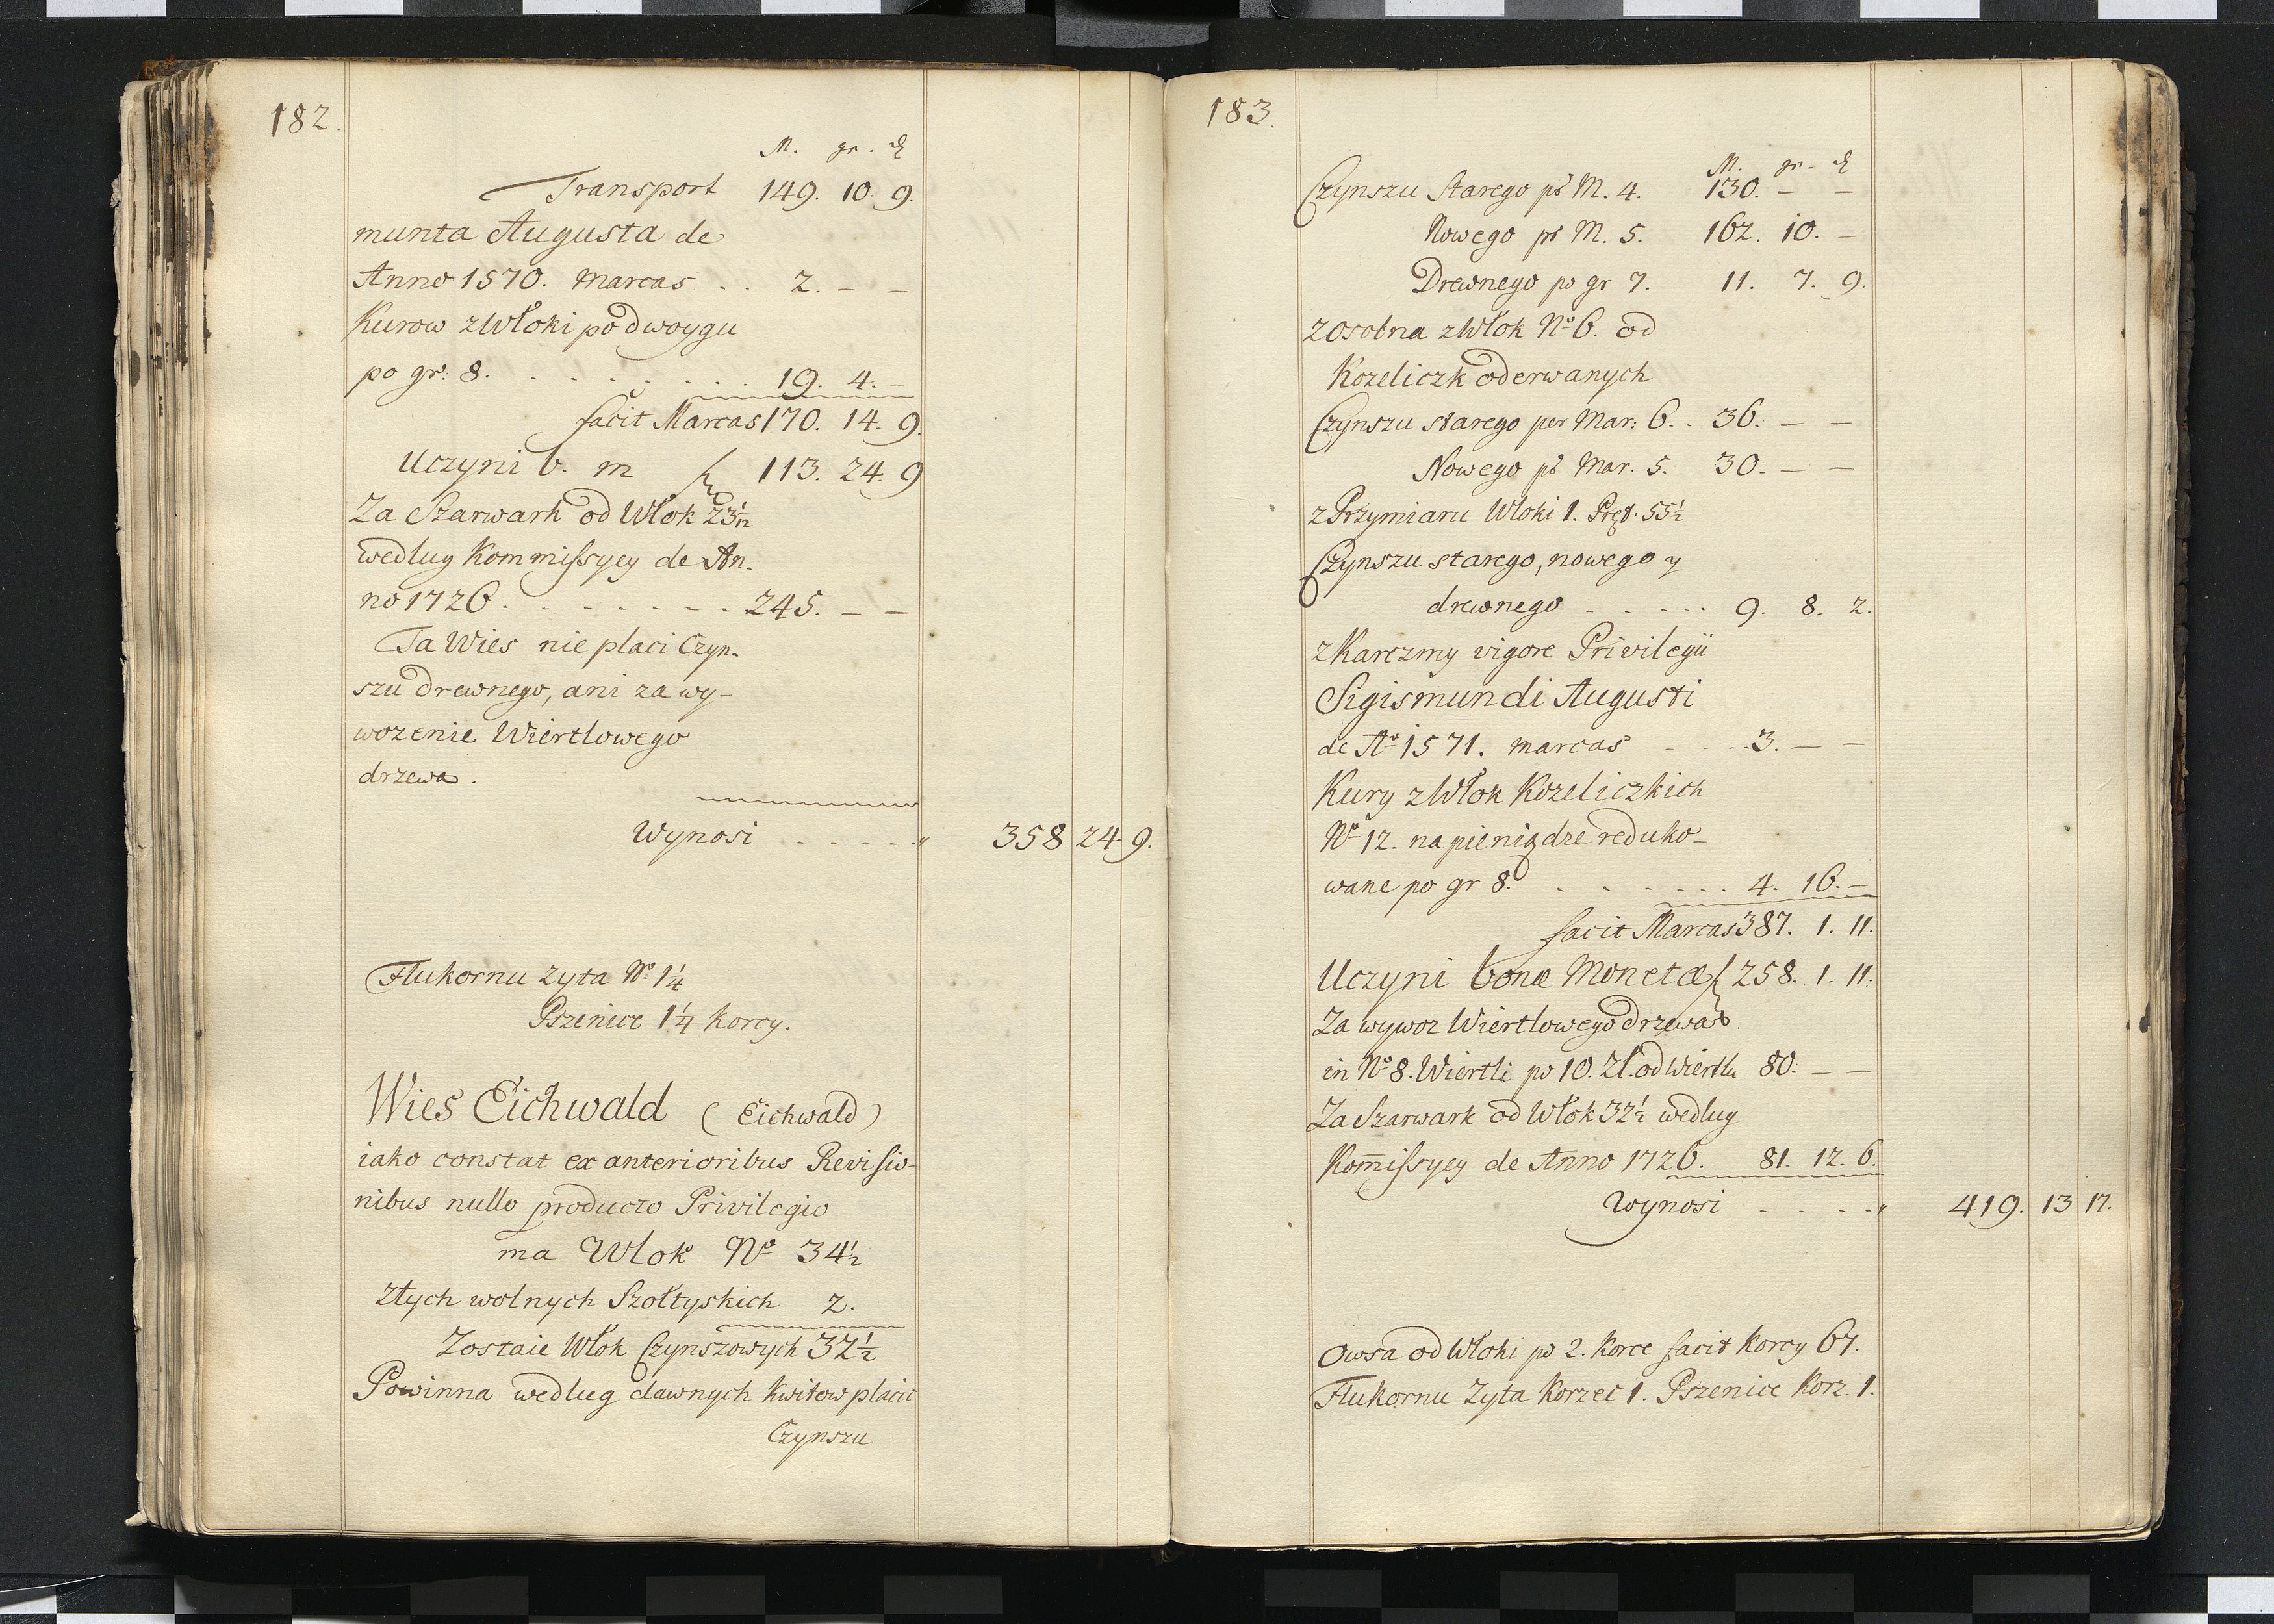 182.
M. gr. ₰
Transport 149. 10. 9.
munta Augusta de
Anno 1570. Marcas . . 2. – –
Kurow z Włoki po dwoygu
po gr: 8. . . . . . . . . 19. 4. –
facit Marcas 170. 14. 9.
Uczyni b. m 113. 24. 9
Za Szarwark od Włok 23½
wedlug Kommissyey de An.
no 1726. . . . . . . . 245. – –
Ta Wies nie placi Czyn-
szu drewnego, ani za wy-
wozenie Wiertlowego
drzewa.
Wynosi . . . . . " 358 24 9.
Flukornu Zyta No. 1¼
Pszenice 1¼ Korcy.
Wies Eichwald (Eichwald)
iako constat ex anterioribus Revisio-
nibus nullo producto Privilegio
ma Wlok No 34½
z tych wolnych Szoltyskich 2.
Zostaie Włok Czynszowych 32½
Powinna wedlug dawnych Kwitow placic
Czynszu
183.
M. gr. ₰
Czynszu Starego pr M. 4. 130. – –
Nowego pr M. 5. 162. 10. –
Drewnego po gr 7. 11. 7. 9.
zosobna z Włok No 6. od
Kozeliczk oderwanych
Czynszu starego per Mar: 6. . 36. – –
Nowego pr Mar. 5. 30. – –
z Przymiaru Wloki 1. Pręt. 55½
Czynszu starego, nowego y
drewnego . . . . . 9. 8. 2.
z Karczmy vigore Privilegii
Sigismundi Augusti
de Ao 1571. marcas . . . 3. – –
Kury z Włok Kozeliczkich
No 12. na pieniądze reduko-
wane po gr 8. . . . . . . 4. 16. –
facit Marcas 387. 1. 11.
Uczyni bonæ Monetæ 258. 1. 11.
Za wywoz Wiertlowego drzewa
in No 8. Wiertli po 10. Zł. od Wiertlu 80. – –
Za Szarwark od Włok 32½ wedlug
Kom̄issyey de Anno 1726. 81. 12. 6.
Wynosi . . . . " 419. 13 17.
Owsa od Włoki po 2. Korce facit Korcy 67.
Flukornu Zyta Korzec 1. Pszenice Korz. 1.